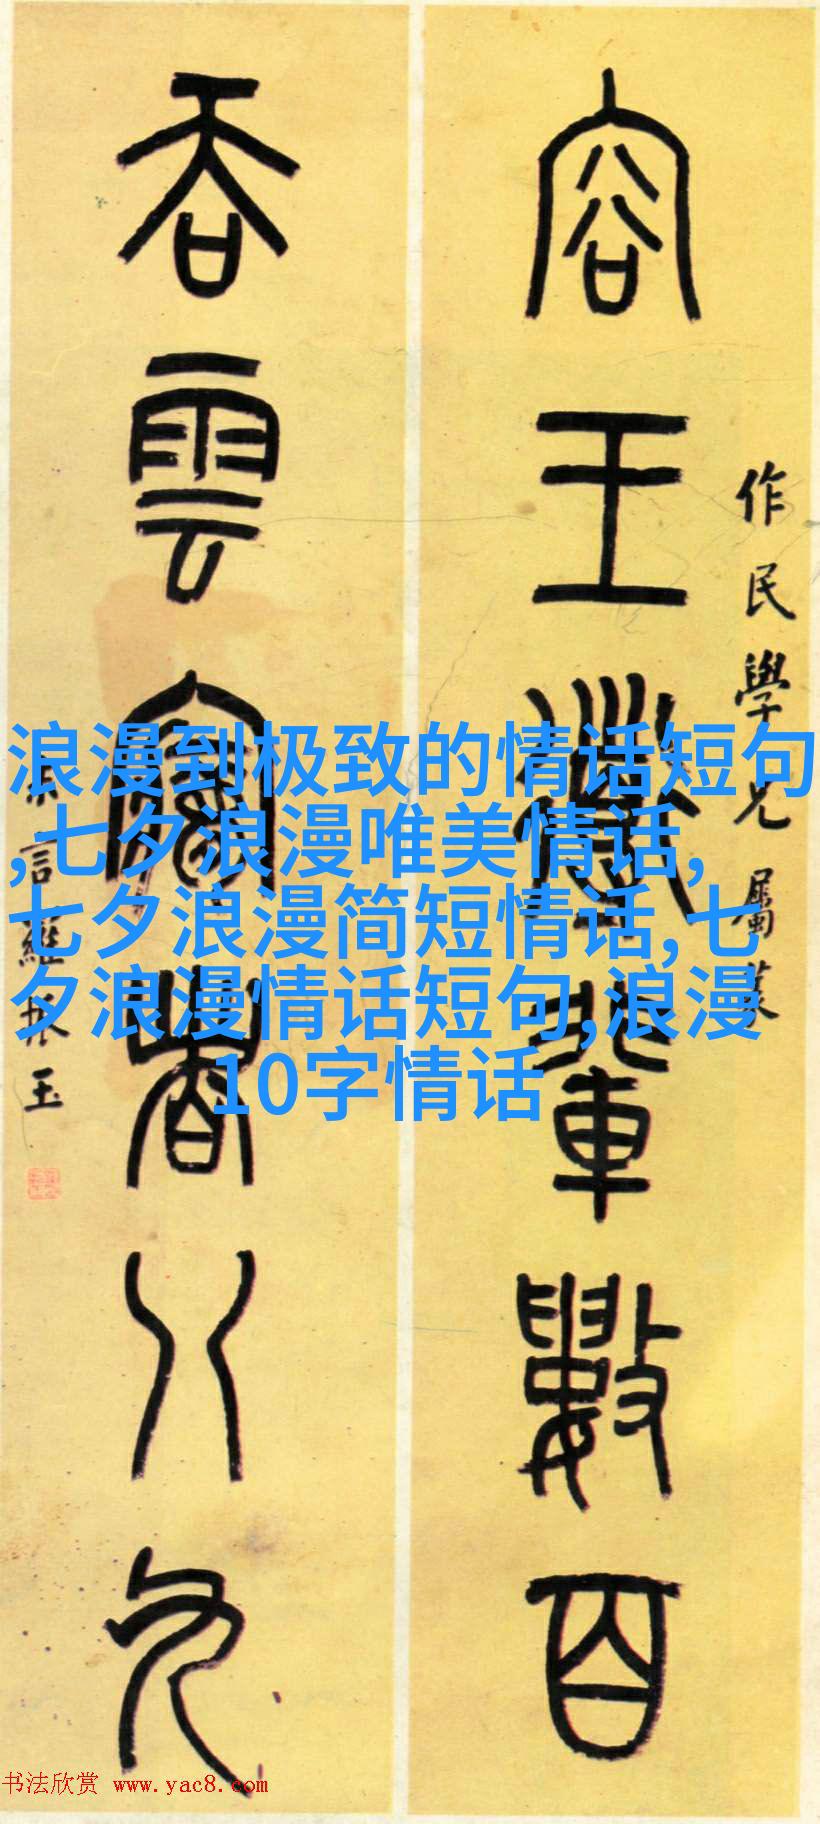 作民學兄屬篆
容王輩數百
吞雲夢者八九
言羅振玉
浪漫到极致的情话短句
,七夕浪漫唯美情话,
七夕浪漫简短情话,七
夕浪漫情话短句,浪漫
10字情话
书法欣赏 www.yac8.com